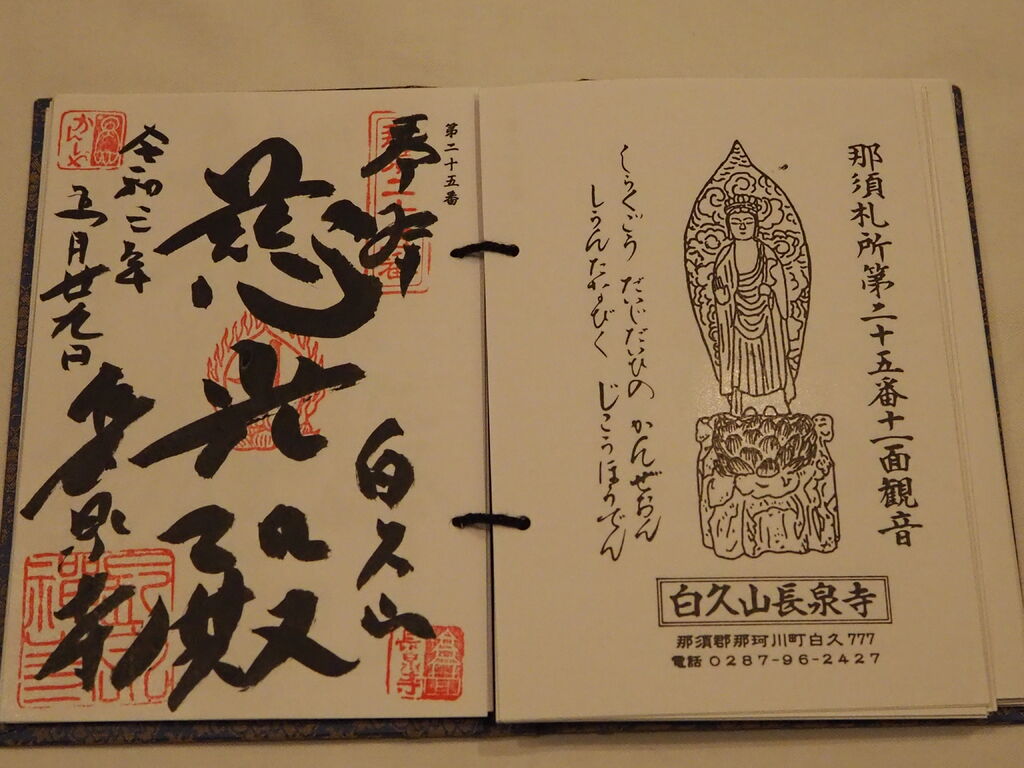 那須札所第二十五番十一面観音
しらくごう だいじだいひの かんぜおん
しうんたなびく じこうほうでん
白久山長泉寺
那須郡那珂川町白久777
電話0287-96-2427
第二十五番
奉拝
白久山
慈光殿
長泉寺
令和三年
五月廿九日
長泉寺